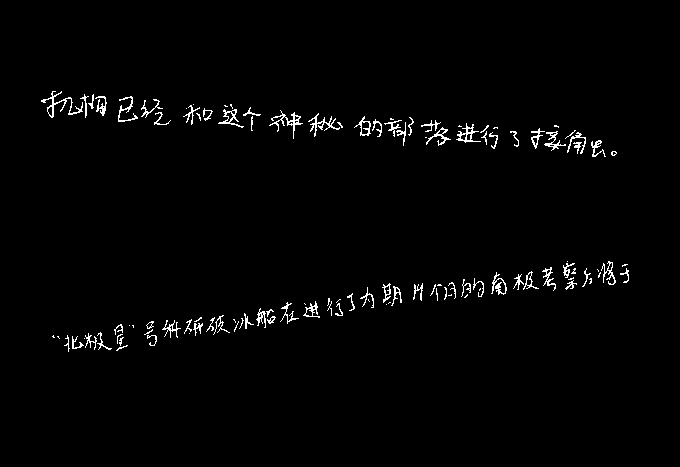 机构已经和这个神秘的部落进行了接触。
“北极星”号科研破冰船在进行了为期4个月的南极考察后将于